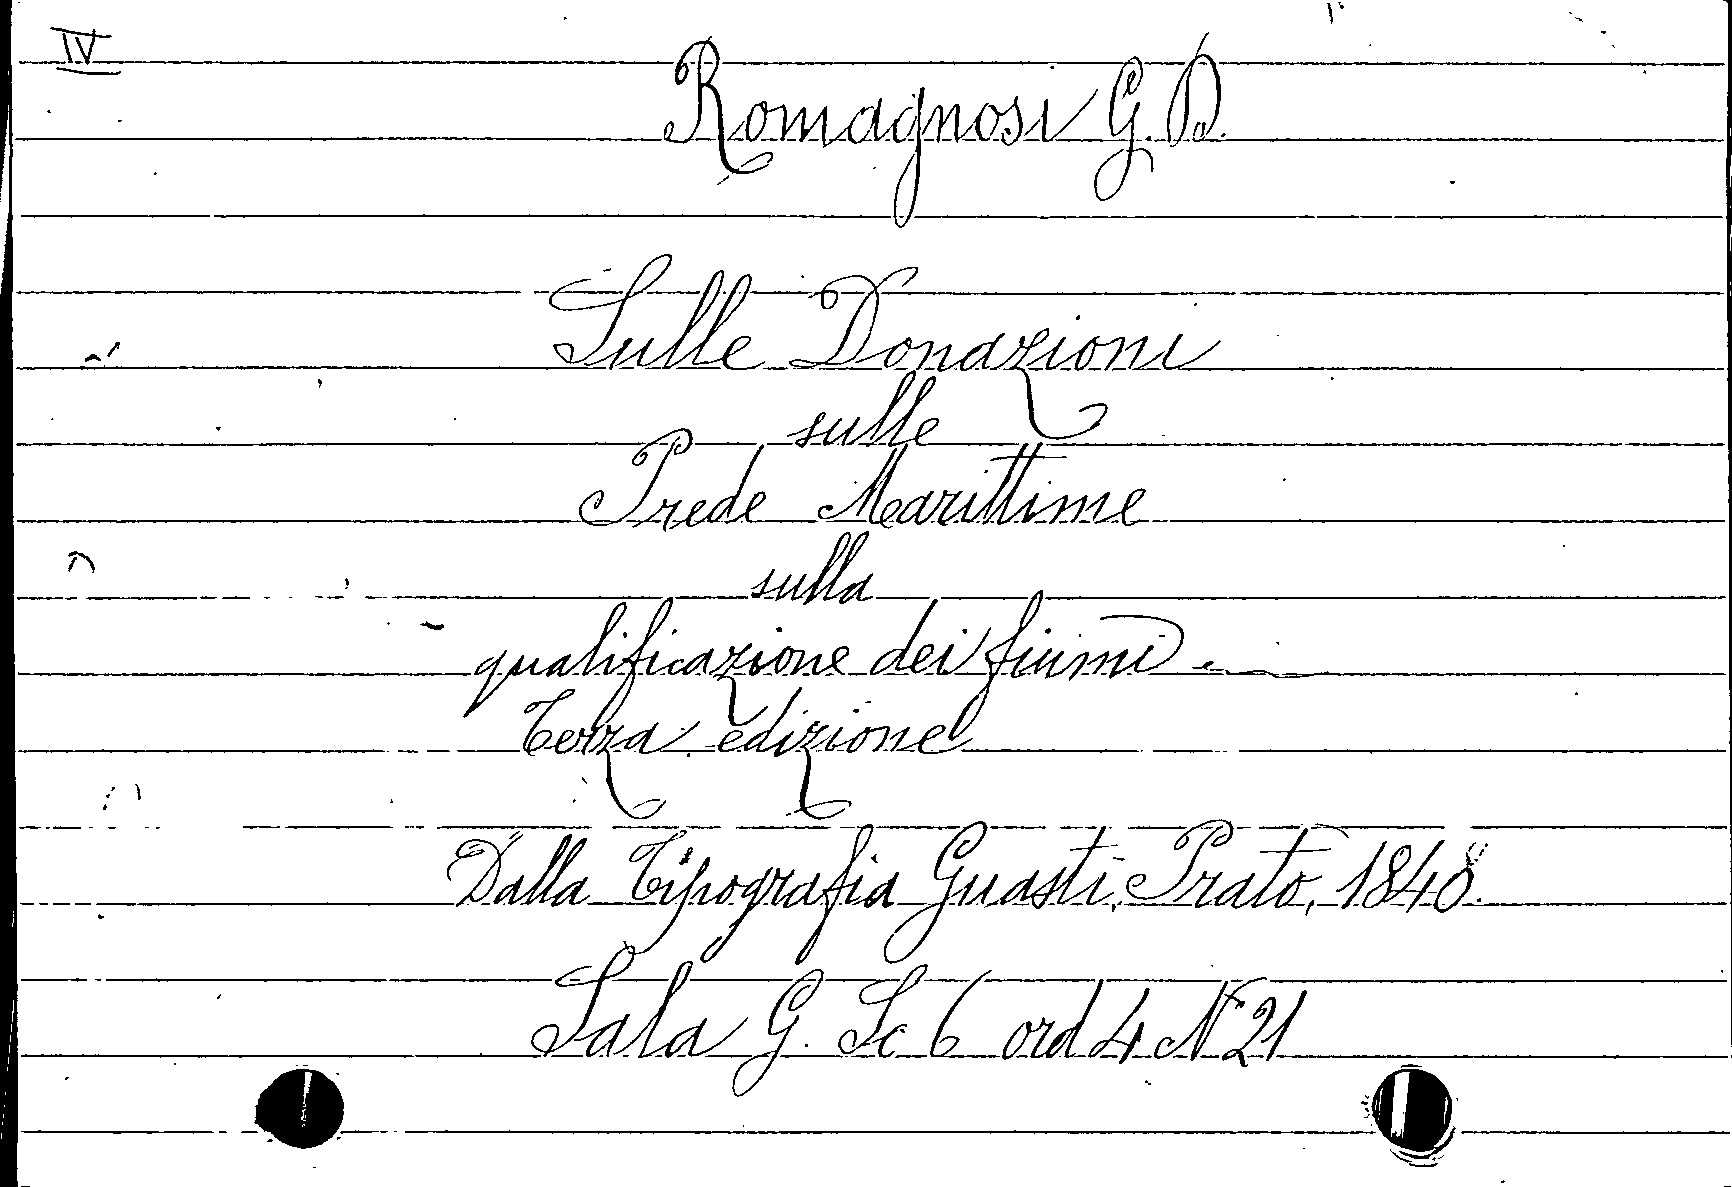 IV
Romagnosi G. D.
Sulle Donazioni
sulle
Prede Marittime
sulla
qualificazione dei fiumi.
Terza edizione
Dalla Tipografia Guasti, Prato, 1848.
Sala G. Sc 6 ord 4 N 21